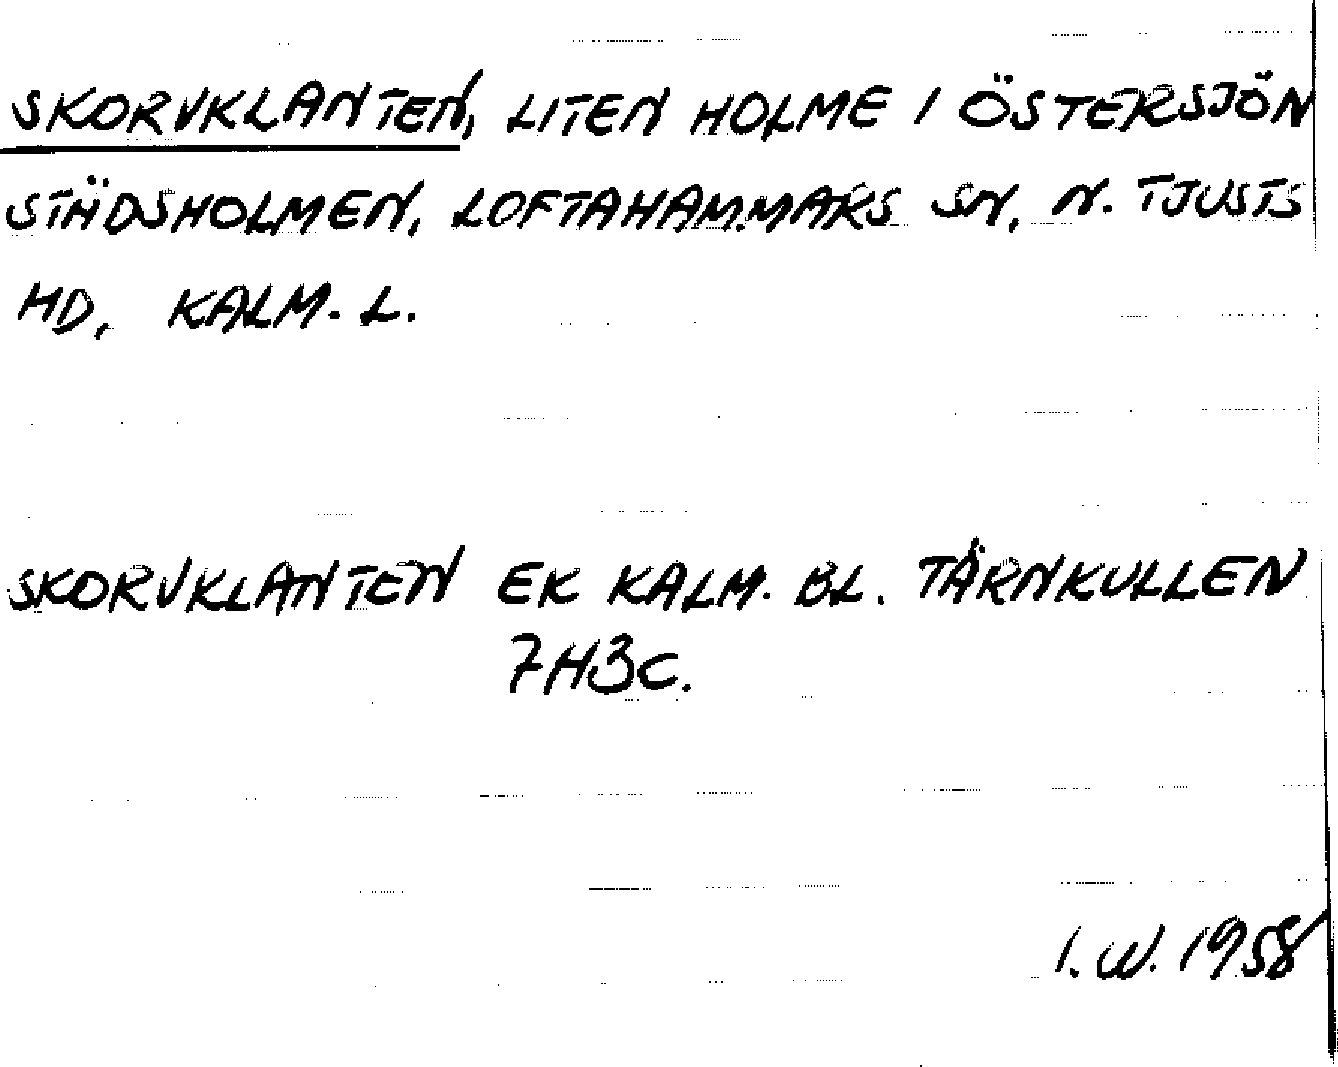 SKORVKLANTEN, LITEN HOLME I ÖSTERSJÖN
STÄDSHOLMEN, LOFTAHAMMARS SN, N. TJUSTS
HD, KALM. L.
SKORVKLANTEN EK KALM. BL. TÄRNKULLEN
7H3C.
I. W. 1958